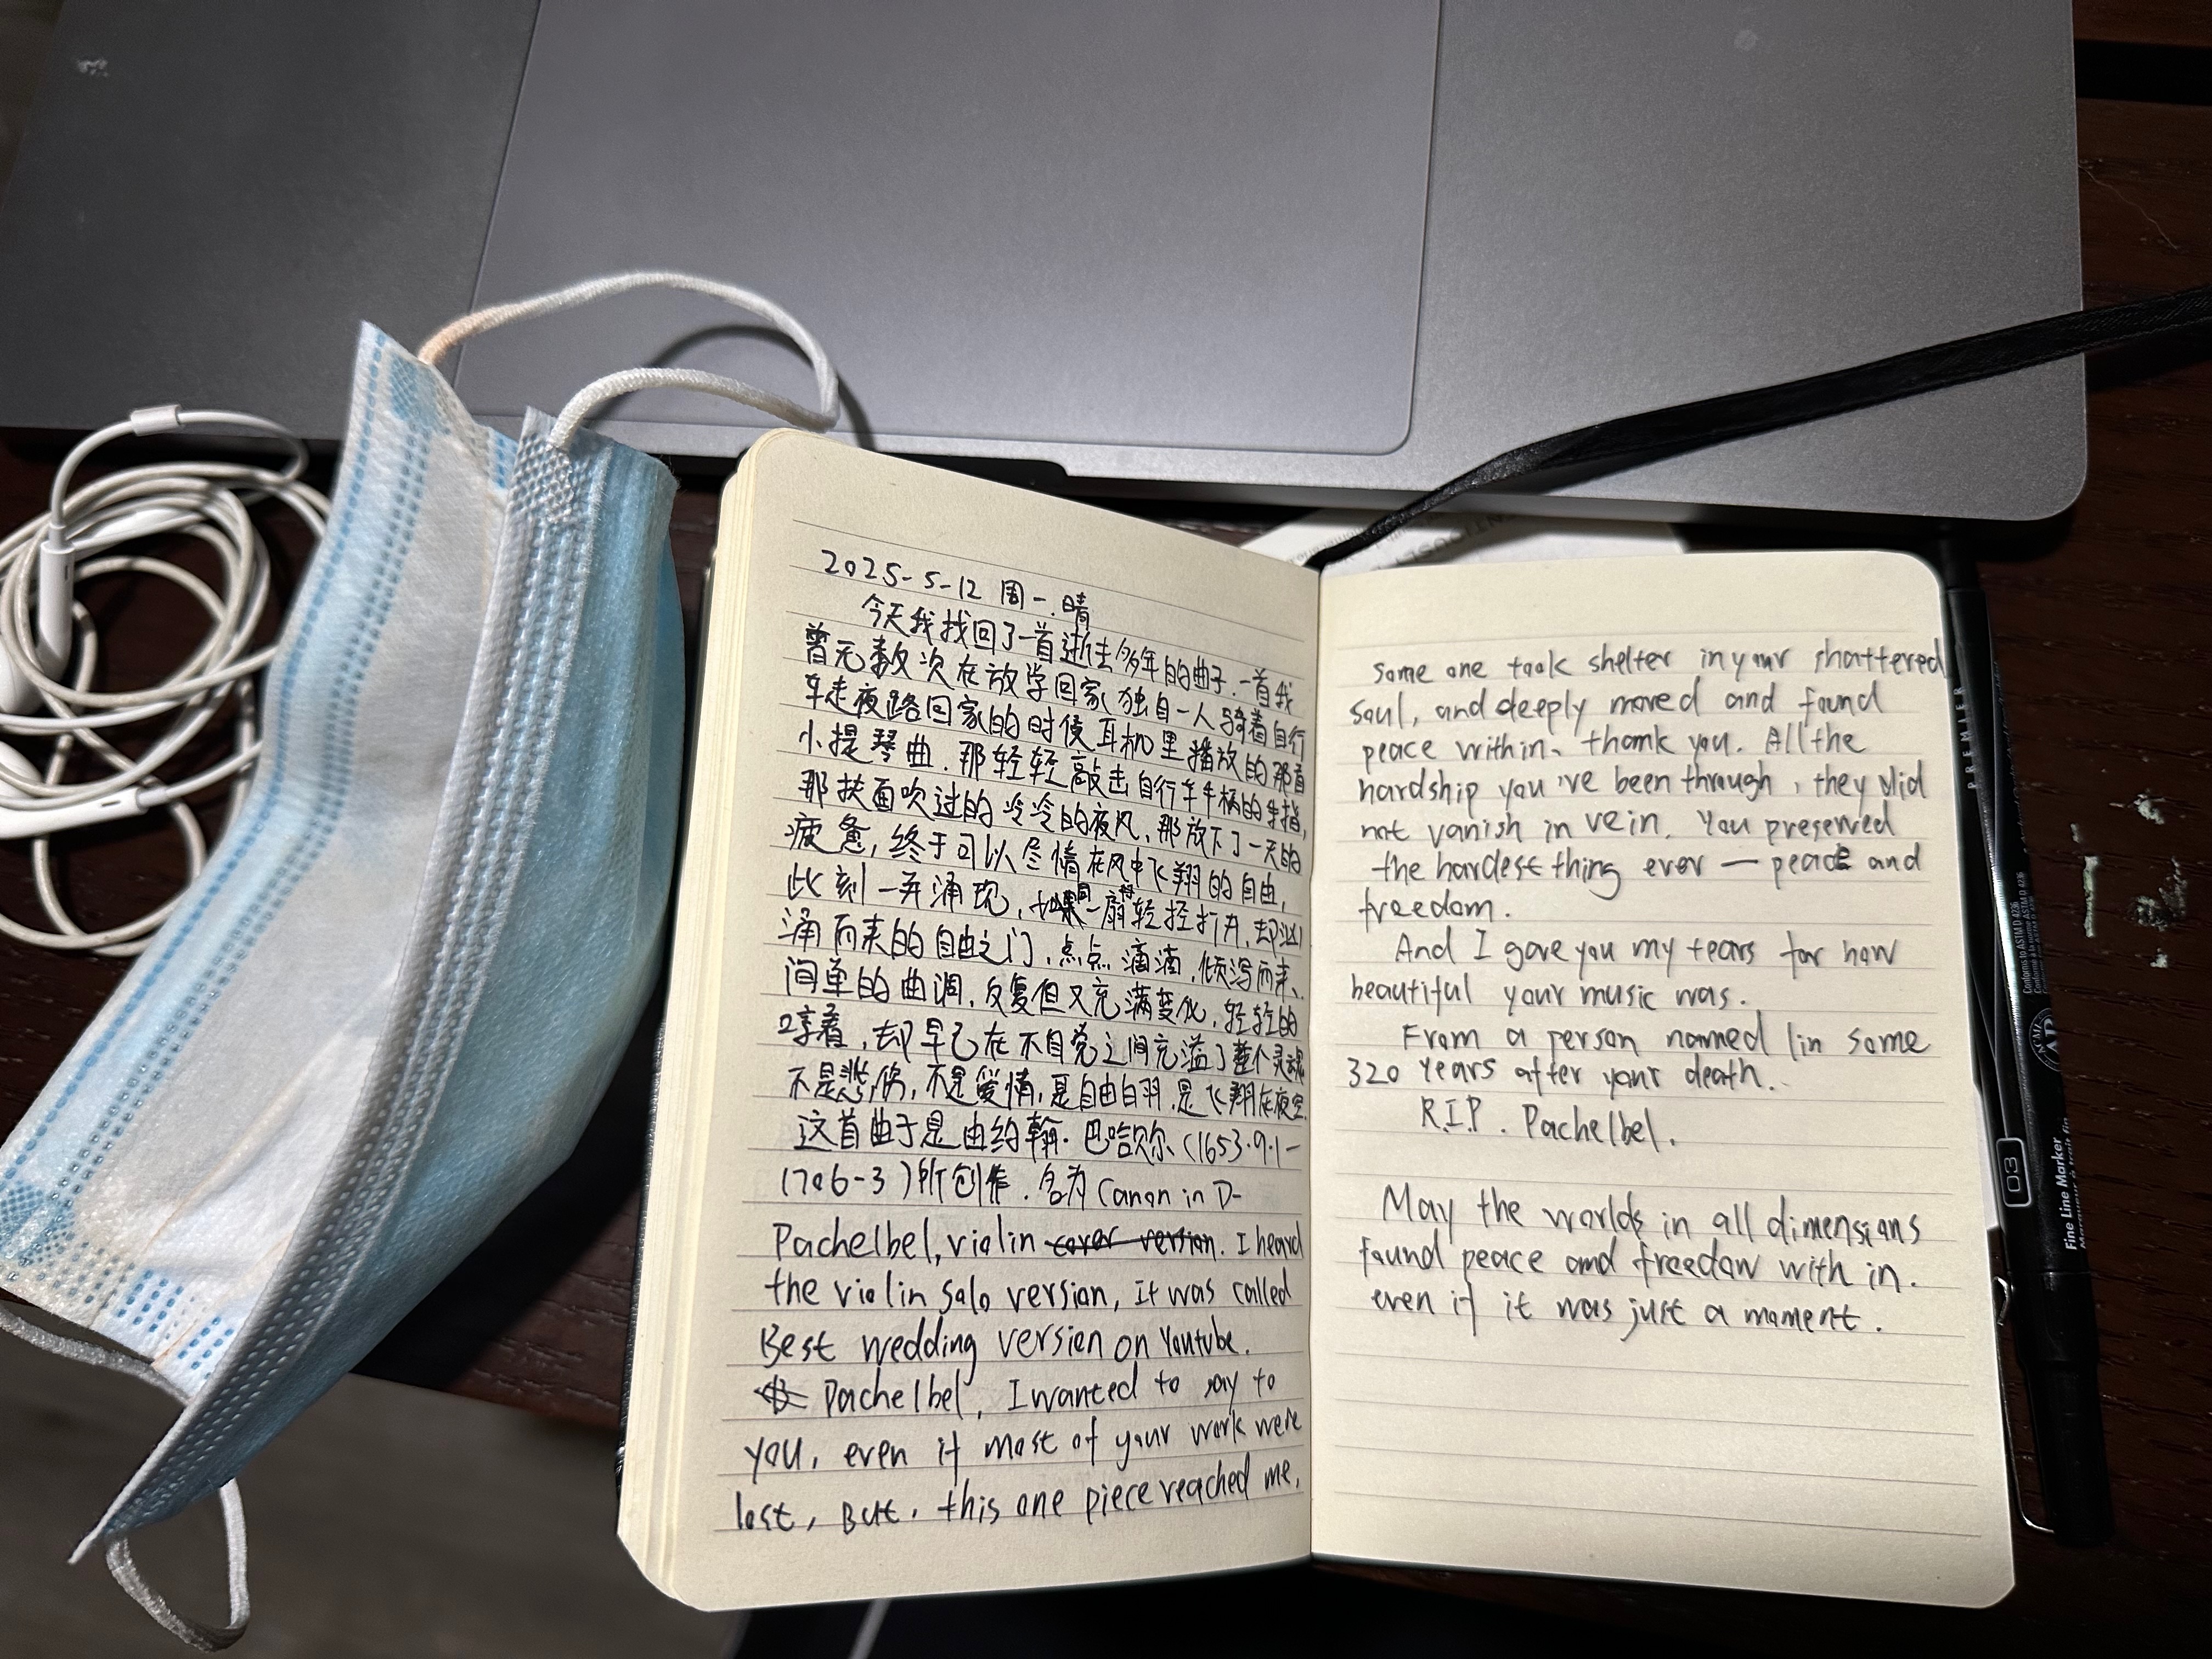 2025-5-12 周一.晴
今天我找回了一首逝去多年的曲子.一首我
曾无数次在放学回家独自一人骑着自行
车走夜路回家的时候耳机里播放的那首
小提琴曲.那轻轻敲击自行车车柄的手指,
那扶面吹过的冷冷的夜风,那放下了一天的
疲惫,终于可以尽情在风中飞翔的自由,
此刻一并涌现,同一扇将轻轻打开,却汹
涌而来的自由之门,点点滴滴,倾泻而来、
间单的曲调,反复但又充满变化,轻轻的
哼着,却早已在不自觉之间充溢了整个灵魂
不是悲伤,不是爱情,是自由白羽,是飞翔在夜空.
这首曲子是由约翰·巴哈贝尔(1653.9.1-
1706-3)所创作.名为Canon in D-
Pachelbel, violin cover version. I heard
the violin solo version, It was called
Best wedding version on Youtube.
Pachelbel, I wanted to say to
you, even if most of your work were
lost, But, this one piece reached me,
Some one took shelter in your shattered
soul, and deeply moved and found
peace within、thank you. All the
hardship you've been through, they did
not vanish in vein. You preserved
the hardest thing ever — peace and
freedom.
And I gave you my tears for how
beautiful your music was.
From a person named lin some
320 years after your death.
R.I.P. Pachelbel.
May the worlds in all dimensions
found peace and freedow with in.
even if it was just a moment.
PREMIER
Conforms to ASTM D 4236
03
Fine Line Marker